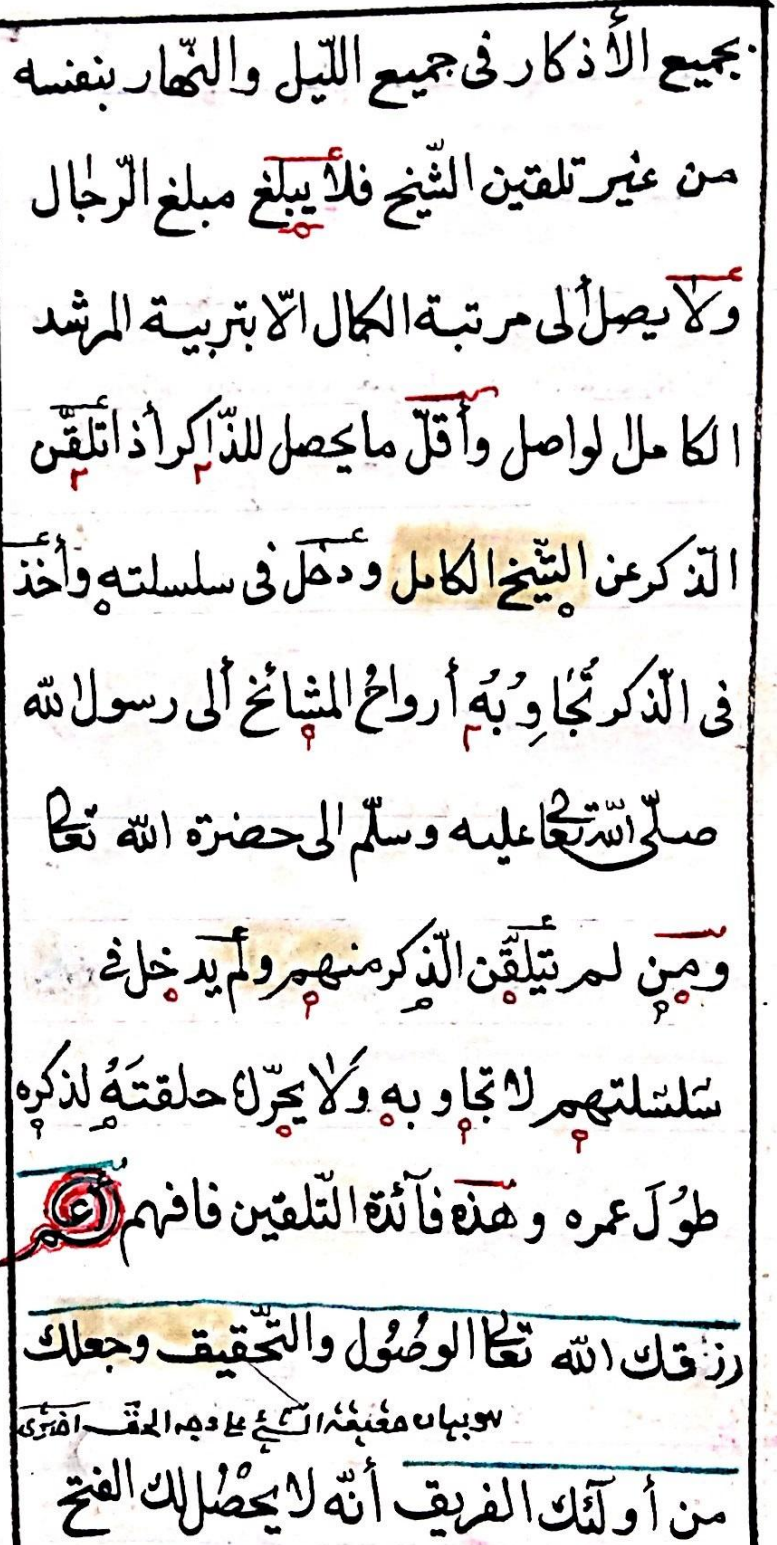 بجميع الأذكار فى جميع اللّيل والنّهار بنفسه
من غير تلقين الشّيخ فلا يبلغ مبلغ الرّجال
ولا يصل ألى مرتبة الكمال الّا بتربية المرشد
الكامل الواصل وأقلّ ما يحصل للذّاكر أذا تلقّن
الذّكر عن الشّيخ الكامل ودخل فى سلسلته وأخذ
فى الذّكر تُجَاوِبُهُ أرواحُ المشائخ ألى رسول الله
صلّى الله تعالى عليه وسلّم الى حضرة الله تعالى
ومن لم يتلقّن الذّكر منهم ولم يدخل فى
سَلسَلتهم لا تجاوبه وَلَا يحرّك حلقتَهُ لذكره
طوُلَ عمره وهذه فآئدة التّلقين فافهم أعلم
رزقك الله تعالى الوصُول والتّحقيق وجعلك
هو بيان حقيقة الشئ على وجه الحق
من أولٓئك الفريق أنّه لا يحصُل لك الفتح